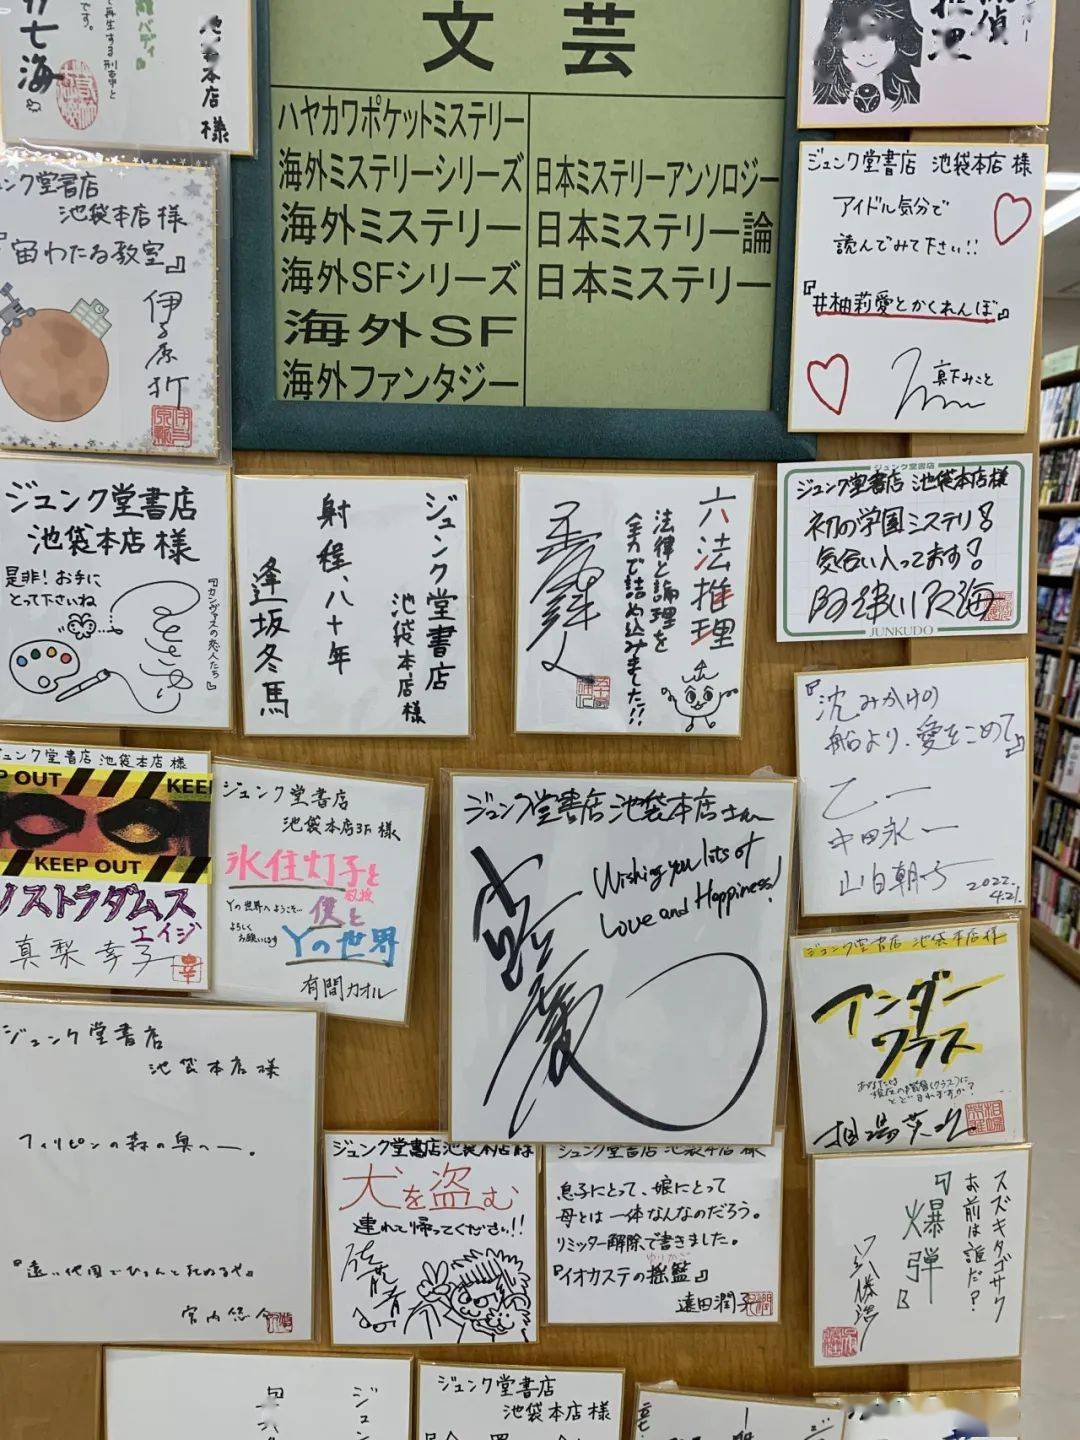 文芸
ハヤカワポケットミステリー
海外ミステリーシリーズ
海外ミステリー
海外SFシリーズ
海外SF
海外ファンタジー
日本ミステリーアンソロジー
日本ミステリー論
日本ミステリー
池袋本店様
七海
ンク堂書店
池袋本店様
『宙わたる教室』
伊与原新
ジュンク堂書店 池袋本店 様
アイドル気分で
読んでみて下さい!!
『#柚莉愛とかくれんぼ』
真下みこと
ジュンク堂書店
池袋本店 様
是非!お手に
とって下さいね
『カンヴァスの恋人たち』
ジュンク堂書店
池袋本店様
射程、八十年
逢坂冬馬
六法推理
法律と論理を
全力で詰め込みました!!
ジュンク堂書店
ジュンク堂書店 池袋本店様
初の学園ミステリ!
気合い入ってます!
阿津川辰海
JUNKUDO
『沈みかけの
船より、愛をこめて』
乙一
中田永一
山白朝子
2022.
4.21.
ジュンク堂書店 池袋本店 様
KEEP OUT
ノストラダムス
エイジ
真梨幸子
ジュンク堂書店
池袋本店3F 様
氷住灯子と
僕と
Yの世界
Yの世界へようこそ…
よろしく
お願いします
有間カオル
ジュンク堂書店 池袋本店さん
Wishing you lots of
Love and Happiness!
ジュンク堂書店 池袋本店様
アンダー
クラス
あなたは
現在の階層(クラス)に
相場英雄
ジュンク堂書店
池袋本店 様
フィリピンの森の奥へー。
宮内悠介
ジュンク堂書店池袋本店 様
犬を盗む
連れて帰ってください!!
ジュンク堂書店 池袋本店 様
息子にとって、娘にとって
母とは一体なんなのだろう。
リミッター解除で書きました。
『イオカステの揺籃』
遠田潤子
スズキタゴサク
お前は誰だ?
『爆弾』
呉勝浩
ジュンク堂書店
池袋本店様